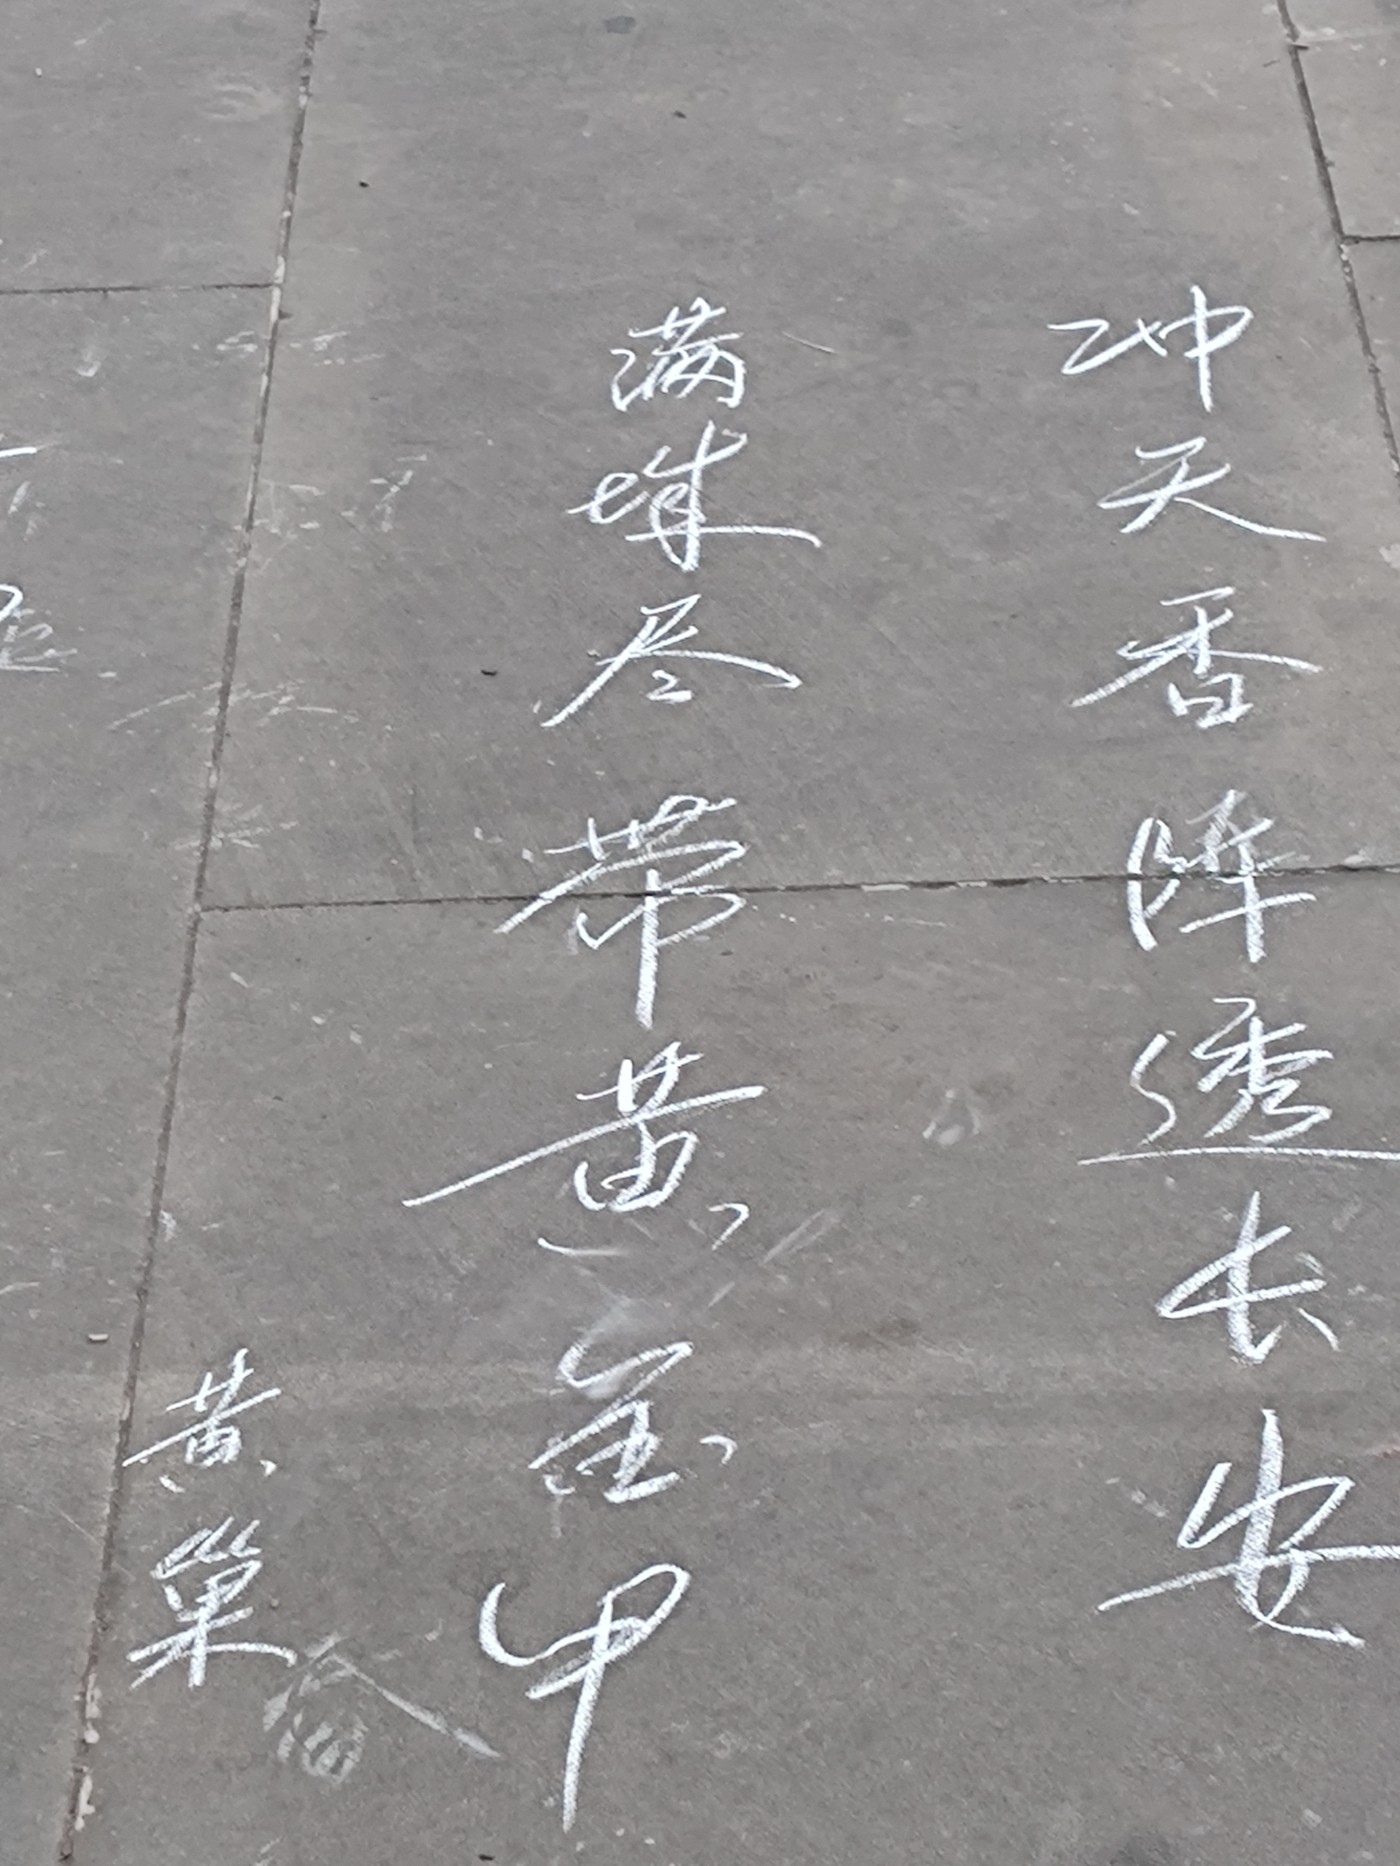 冲天香阵透长安
满城尽带黄金甲
黄巢